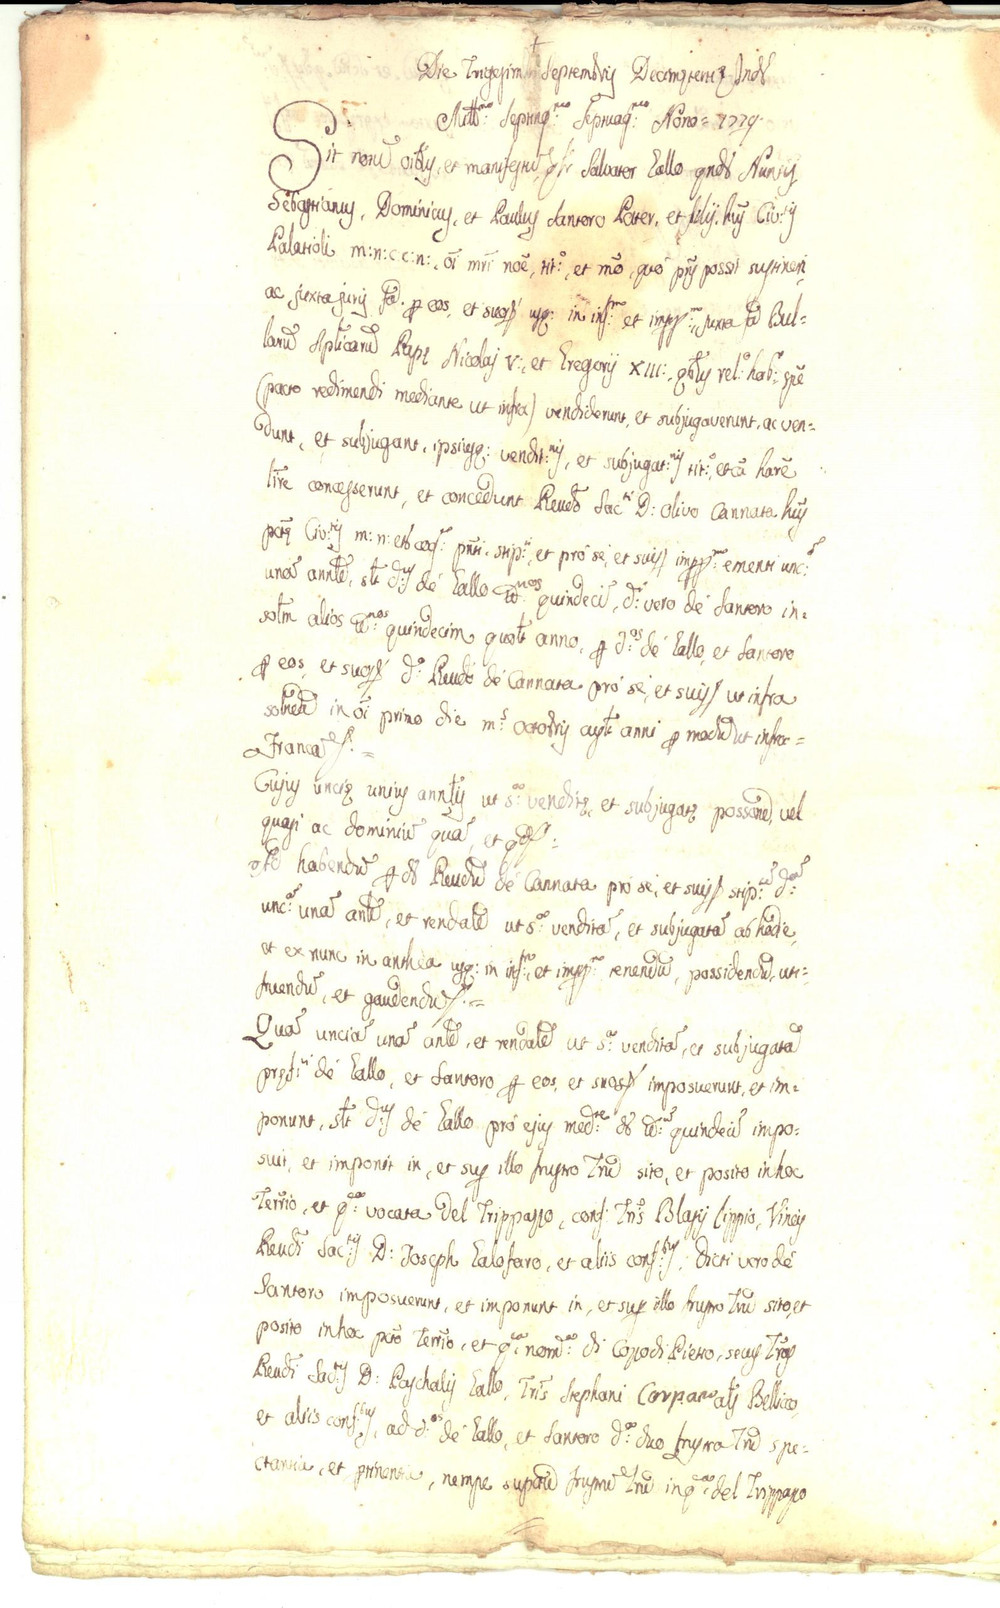 Die Trigesimo Septembris Decimętertię Indis
Mill.mo Septing.mo Septuag.mo Nono = 1779.
Sit notũ oibus, et manifestũ, qd Salvator Gallo qndam Nuntij
Sebastianus, Dominicus, et Paulus Santoro Pater, et filij, hujus Civ:tis
Palatioli m: n: c: c: n:, oĩ mri noẽ, tit:o, et mõ, quo pñs possit sustineri,
ac juxta juris fã. p eos, et suos usq: in inf:m et impp:m, juxta fã Bul-
larũ Aplicarũ Papę Nicolai V:, et Gregorij XIII:, qbus rel: hab:
(pacto redimendi mediante ut infra) vendiderunt, et subjugaverunt, ac ven-
dunt, et subjugant, ipsiusq: vendit:nis, et subjugat:nis tit:o, et cã
tre concesserunt, et concedunt Reũdo Sac:ti D: Olivo Cannata hujus
pctę Civ:tis m: n: et coq: pñti, stip:ti, et pro se, et suis impp:m ementi unc:
unã annlẽ, slt d:us de Gallo tt:nos quindecĩ, d: vero de Santoro in-
soltm alios tt:nos quindecim quolt anno, p d:os de Gallo, et Santoro
p eos, et suos d:o Reudo de Cannata pro se, et suis ut infra
solvend in oĩ primo die m:s Octobris cujuslt anni p modũ ut infra =
Francã =
Cujus uncię unius annlis ut s:a venditę, et subjugatę possond, vel
quasi ac dominiũ quã, et
Ad habendũ p d Reudũ de Cannata pro se, et suis stip:tẽ d:ã
unc:ã unã anlẽ, et rendalẽ ut s:a venditã, et subjugatã ab hodie,
et ex nunc in anthea usq: in inf:m, et impp:m tenendũ, possidendũ, uti-
fruendũ, et gaudendũ =
Quã unciã unã anlẽ, et rendalẽ ut s:a venditã, et subjugatã
pręfti de Gallo, et Santoro p eos, et suos imposuerunt, et im-
ponunt, slt d:us de Gallo pro ejus med:te d tt:s quindecĩ impo-
suit, et imponit in, et sup illo frustro Trẽ sito, et posito in hoc
Terrio, et q:ta vocata del Trippazzo, conf: Tris Blasij Cippio, Vineis
Reudi Sac:tis D: Joseph Calofaro, et aliis conf:bus, dicti vero de
Santoro imposuerunt, et imponunt in, et sup illo frustro Trũ sito, et
posito in hoc pcto Terrio, et q:ta nom:ta di Cozzo di Pietro, secus Tras
Reudi Sac:tis D: Paschalis Gallo, Tris Stephani Bellico,
et aliis conf:bus, ad d:os de Gallo, et Santoro d:a duo frustra Trũ spe-
ctantia, et ptinentia, nempe suptũ frustrũ Trũ in q:ta del Trippazzo